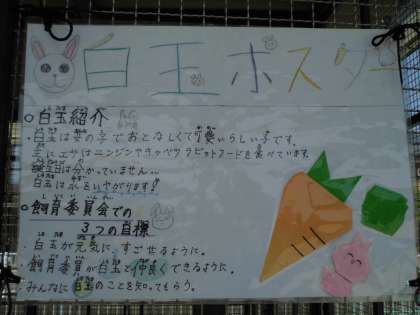 白玉ポスター
○白玉紹介
・白玉は女の子でおとなしくて可愛いらしい子です。
主にエサはニンジンやキャベツラビットフードを食べています。
誕生日は分かっていません。
白玉は水をいやがります!
○飼育委員会での
3つの目標
・白玉が元気に、すごせるように。
・飼育委員が白玉と仲良くできるように。
・みんなに白玉のことを知ってもらう。